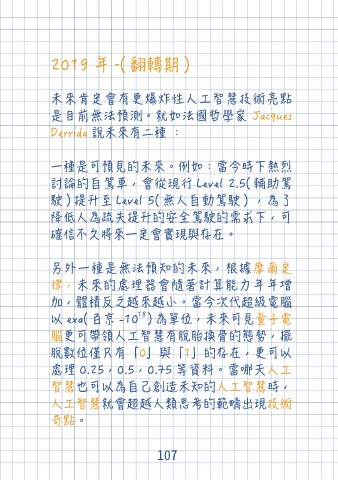 2019 年 -( 翻轉期 )
未來肯定會有更爆炸性人工智慧技術亮點
是目前無法預測。就如法國哲學家 Jacques
Derrida 說未來有二種 :
一種是可預見的未來。例如:當今時下熱烈
討論的自駕車,會從現行 Level 2.5( 輔助駕
駛 ) 提升至 Level 5( 無人自動駕駛 ) ,為了
降低人為疏失提升的安全駕駛的需求下,可
確信不久將來一定會實現與存在。
另外一種是無法預知的未來,根據摩爾定
律,未來的處理器會隨著計算能力年年增
加,體積反之越來越小。當今次代超級電腦
以 exa( 百京 -10¹⁸ ) 為單位,未來可見量子電
腦更可帶領人工智慧有脫胎換骨的態勢,擺
脫數位僅只有「0」與「1」的存在,更可以
處理 0.25,0.5,0.75 等資料。當哪天人工
智慧也可以為自己創造未知的人工智慧時,
人工智慧就會超越人類思考的範疇出現技術
奇點。
107